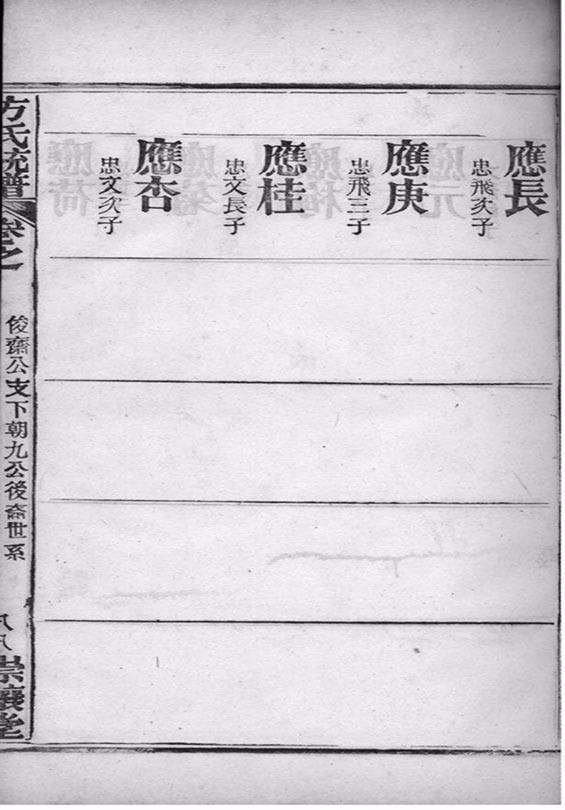 應長
忠飛次子
應庚
忠飛三子
應桂
忠文長子
應杏
忠文次子
方氏統譜
卷之
俊齋公支下朝九公後裔世系
八八
崇讓堂